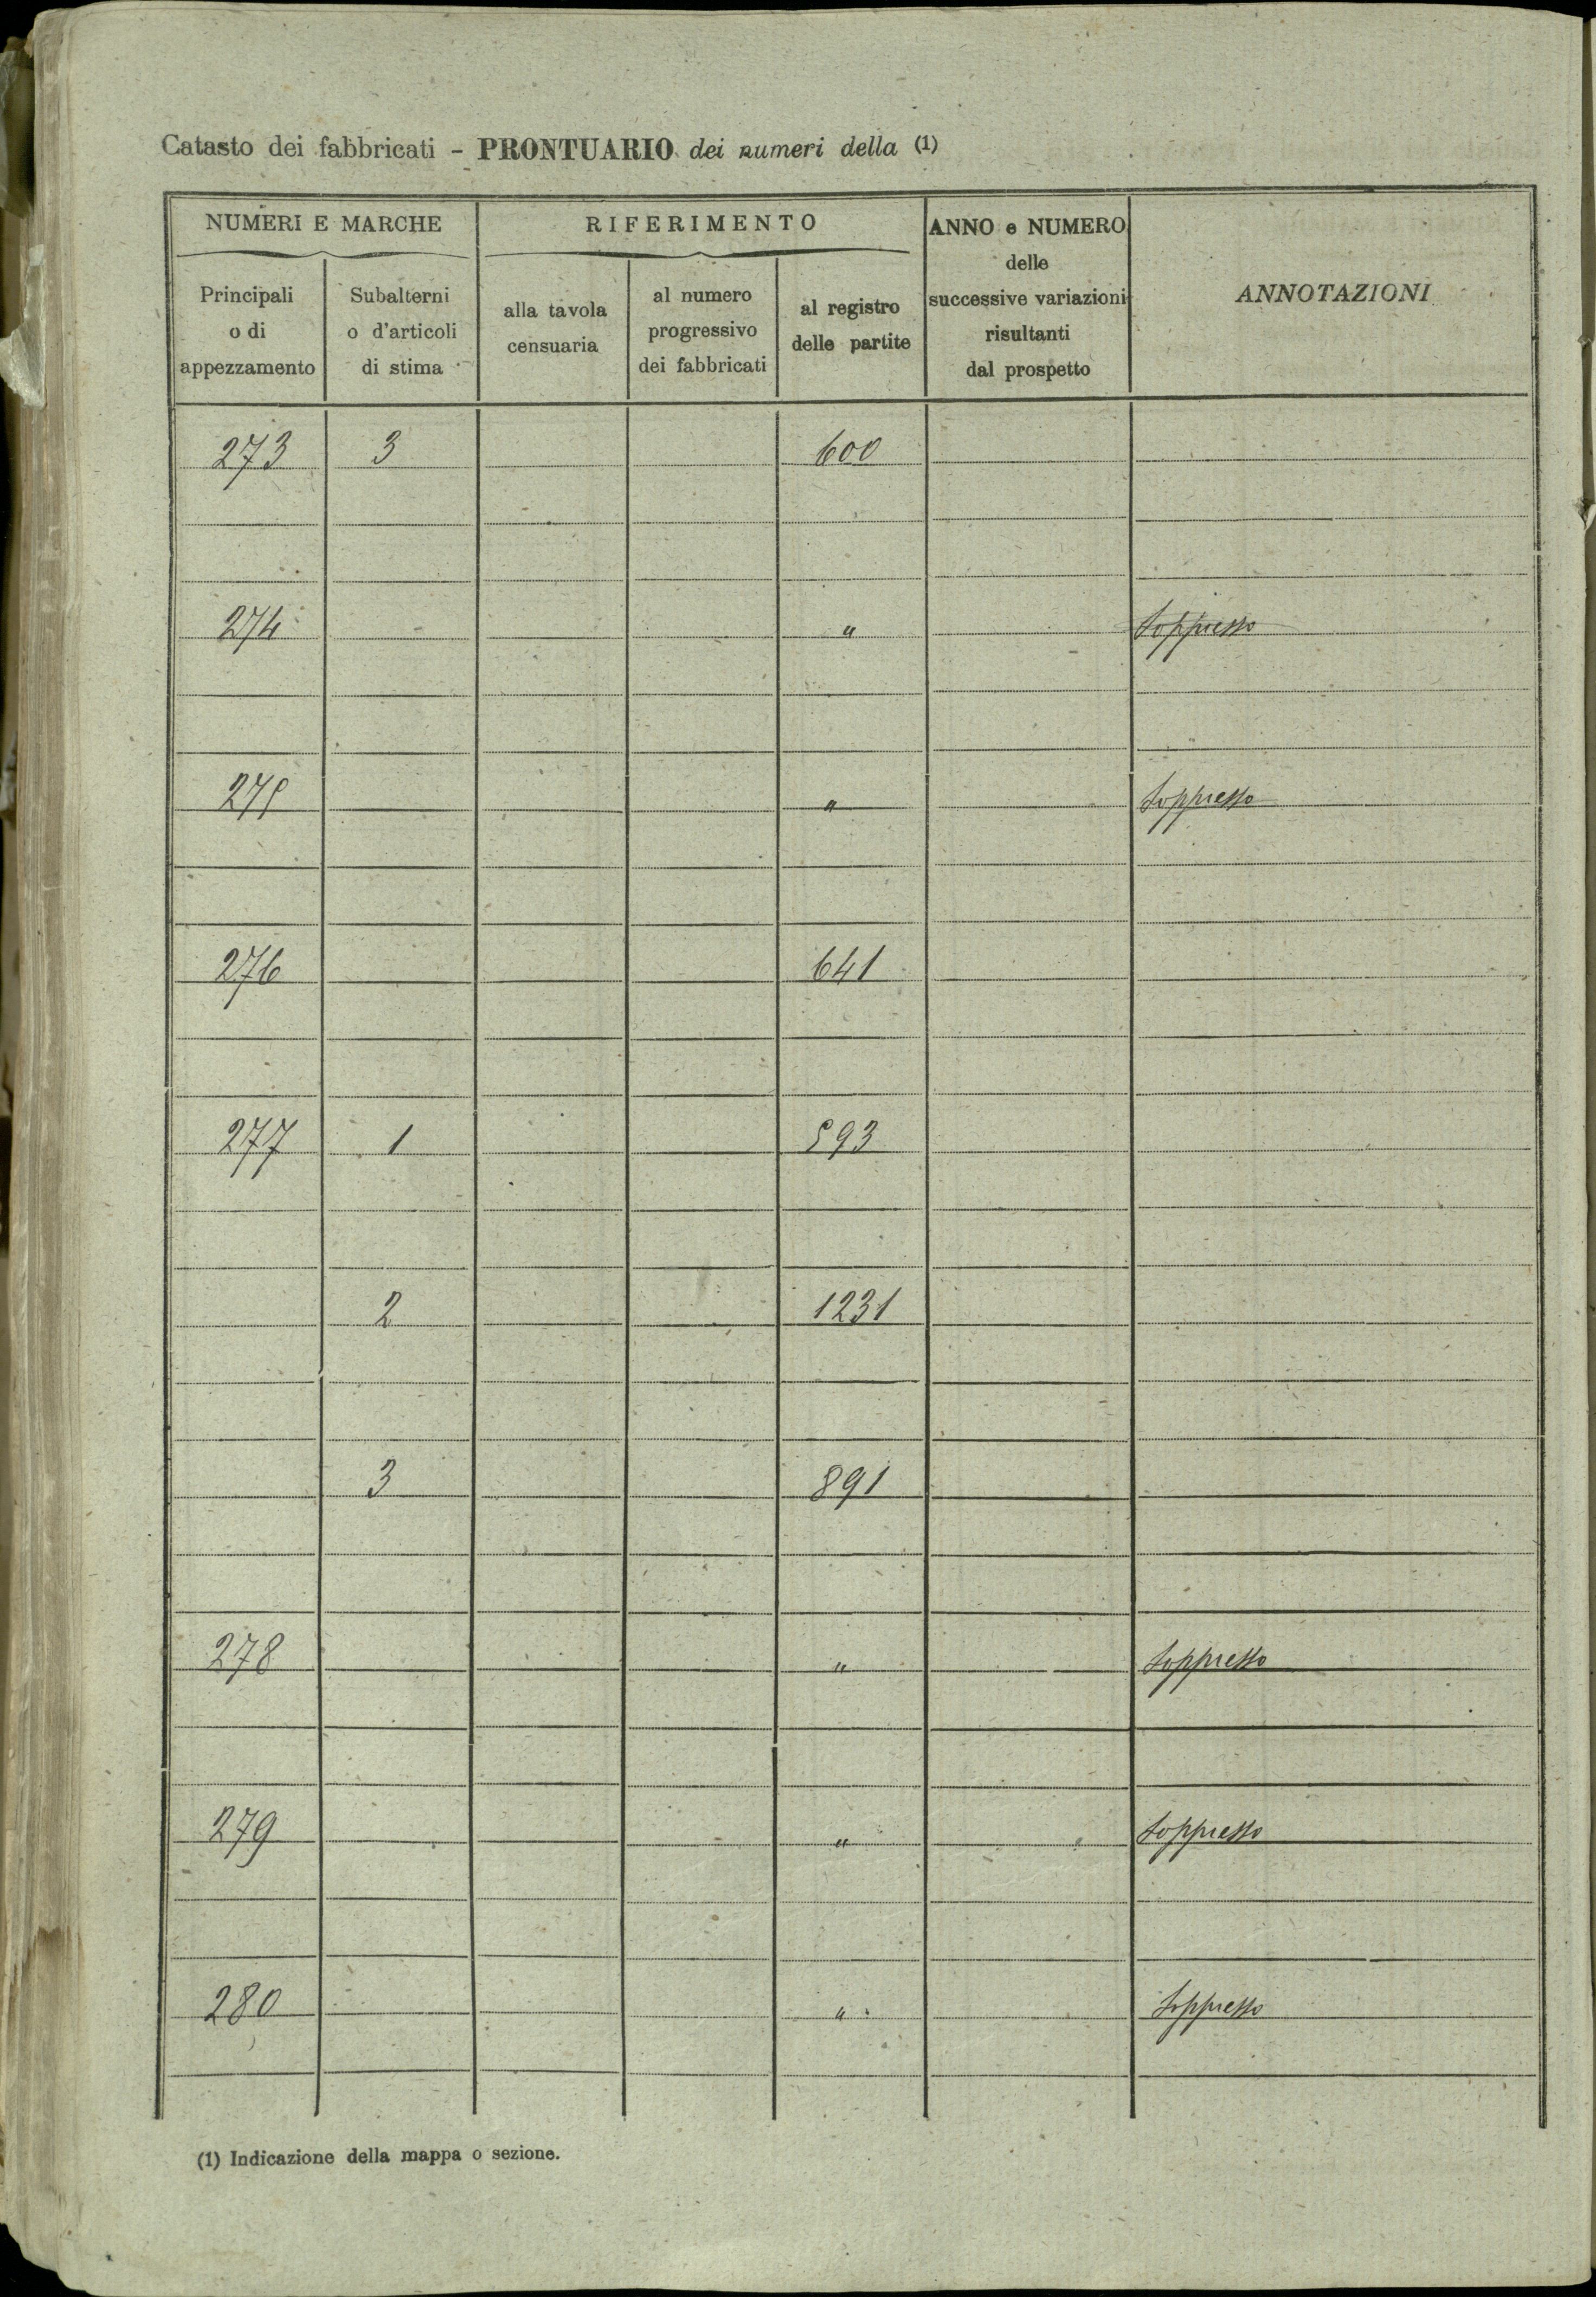 Catasto dei fabbricati - PRONTUARIO dei numeri della (1)
NUMERI E MARCHE RIFERIMENTO ANNO e NUMERO delle successive variazioni risultanti dal prospetto ANNOTAZIONI
Principali o di appezzamento Subalterni o d'articoli di stima alla tavola censuaria al numero progressivo dei fabbricati al registro delle partite
273 3 600
274 " Soppresso
275 " Soppresso
276 641
277 1 593
2 1231
3 891
278 " Soppresso
279 " Soppresso
280 " Soppresso
(1) Indicazione della mappa o sezione.